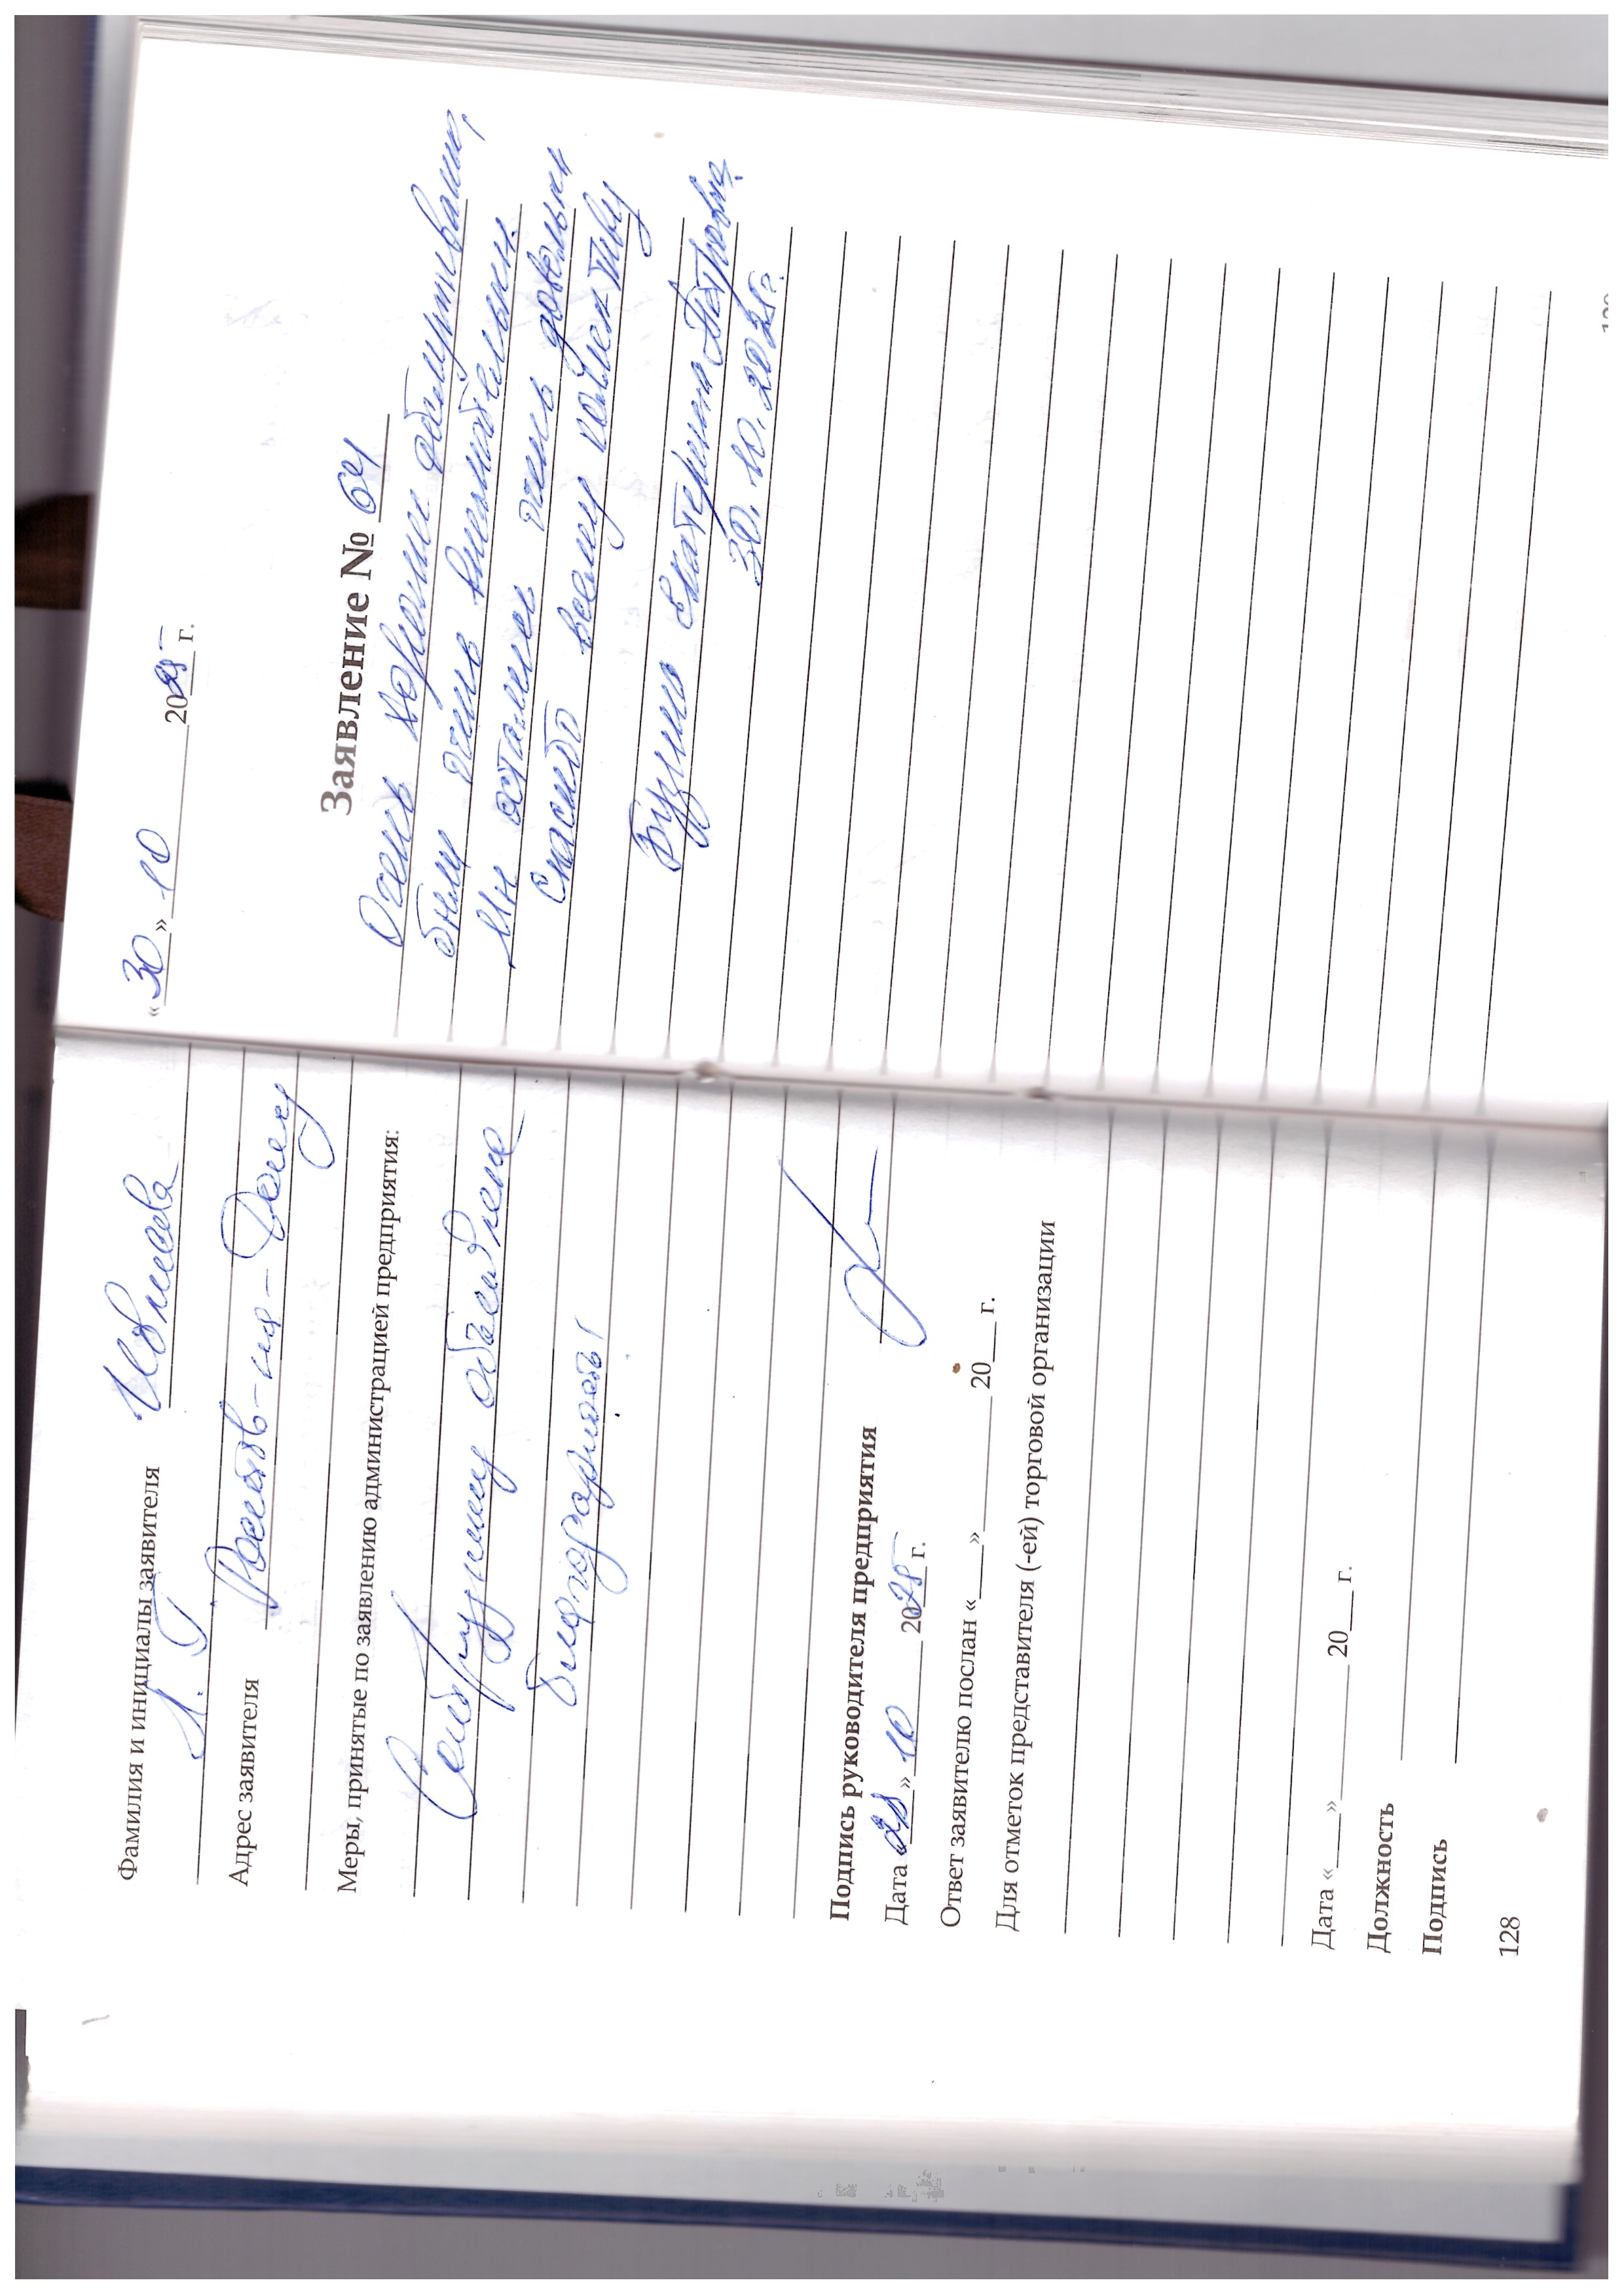 Фамилия и инициалы заявителя Извлеева
Л. Г.
Адрес заявителя Ростов-на-Дону
Меры, принятые по заявлению администрацией предприятия:
Сотруднику объявлена
благодарность!
Подпись руководителя предприятия
Дата 28 » 10 2025 г.
Ответ заявителю послан «___» ________ 20___ г.
Для отметок представителя (-ей) торговой организации
Дата «____» ________ 20___ г.
Должность
Подпись
128
« 30 » 10 2025 г.
Заявление № 64
Очень хорошо обслуживали,
были очень внимательны.
Мы остались очень довольны
Спасибо всему коллективу
Екатерина Петровна
30.10.2025г.